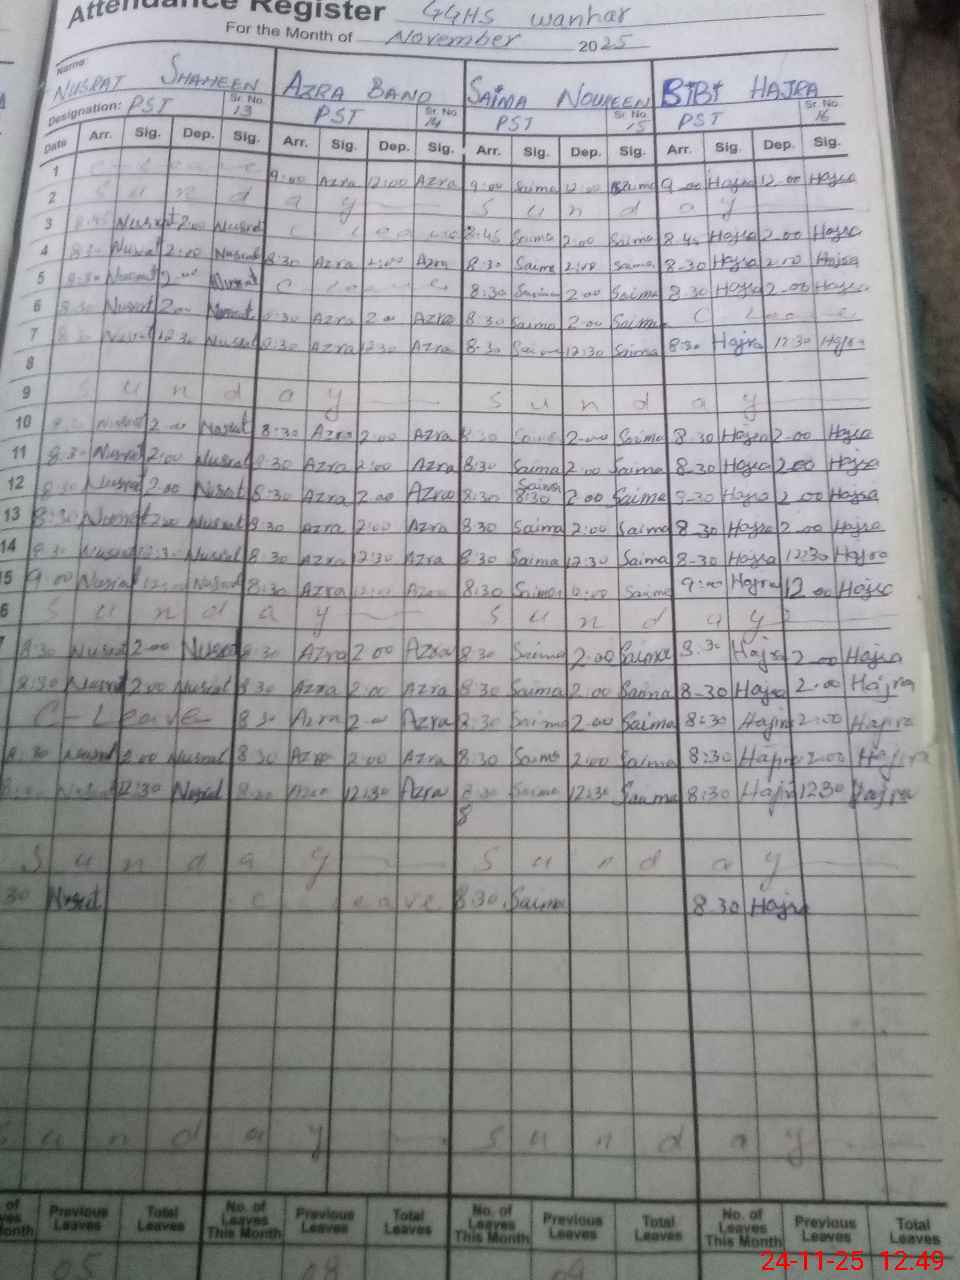 Attendance Register GGHS wanhar
For the Month of November 2025
Name: NUSRAT SHAHEEN AZRA BANO SAIMA NOUREEN BIBI HAJRA
Designation: PST Sr. No. 13 PST Sr. No. 14 PST Sr. No. 15 PST Sr. No. 16
Date Arr. Sig. Dep. Sig. Arr. Sig. Dep. Sig. Arr. Sig. Dep. Sig. Arr. Sig. Dep. Sig.
1 9:00 Azra 12:00 Azra 9:00 Saima 12:00 Saima 9.00 Hajra 12.00 Hajra
2 S u n d a y S u n d a y
3 8:45 Nusrat 2:00 Nusrat C leave 8:45 Saima 2:00 Saima 8.45 Hajra 2.00 Hajra
4 8:30 Nusrat 2:00 Nusrat 8:30 Azra 2:00 Azra 8:30 Saima 2:00 Saima 8-30 Hajra 2.00 Hajra
5 8:30 Nusrat 2:00 Nusrat C leave 8:30 Saima 2.00 Saima 8.30 Hajra 2.00 Hajra
6 8:30 Nusrat 2:00 Nusrat 8:30 Azra 2:00 Azra 8:30 Saima 2:00 Saima C leave
7 8:30 Nusrat 12:30 Nusrat 8:30 Azra 12:30 Azra 8:30 Saima 12:30 Saima 8:30 Hajra 12:30 Hajra
8
9 S u n d a y S u n d a y
10 Nusrat 2:00 Nusrat 8:30 Azra 2:00 Azra 8:30 Saima 2:00 Saima 8.30 Hajra 2.00 Hajra
11 8:30 Nusrat 2:00 Nusrat 8:30 Azra 2:00 Azra 8:30 Saima 2:00 Saima 8-30 Hajra 2.00 Hajra
12 8:30 Nusrat 2:00 Nusrat 8:30 Azra 2:00 Azra 8:30 Saima 8:30 2:00 Saima 8-30 Hajra 2.00 Hajra
13 8:30 Nusrat 2:00 Nusrat 8:30 Azra 2:00 Azra 8:30 Saima 2:00 Saima 8-30 Hajra 2.00 Hajra
14 8:30 Nusrat 12:30 Nusrat 8:30 Azra 12:30 Azra 8:30 Saima 12:30 Saima 8-30 Hajra 12:30 Hajra
15 9:00 Nusrat 12:00 Nusrat 8:30 Azra 12:00 Azra 8:30 Saima 12:00 Saima 9:00 Hajra 12.00 Hajra
6 S u n d a y S u n d a y
8:30 Nusrat 2:00 Nusrat 8:30 Azra 2:00 Azra 8:30 Saima 2:00 Saima 8:30 Hajra 2.00 Hajra
8:30 Nusrat 2:00 Nusrat 8:30 Azra 2:00 Azra 8:30 Saima 2:00 Saima 8-30 Hajra 2.00 Hajra
C-Leave 8:30 Azra 2:00 Azra 8:30 Saima 2:00 Saima 8:30 Hajira 2:00 Hajira
8:30 Nusrat 2:00 Nusrat 8:30 Azra 2:00 Azra 8:30 Saima 2:00 Saima 8:30 Hajira 2:00 Hajira
Nusrat 12:30 Nusrat 8:30 Azra 12:30 Azra 8:30 Saima 12:30 Saima 8:30 Hajira 12:30 Hajra
8
S u n d a y S u n d a y
30 Nusrat C leave 8:30 Saima 8.30 Hajra
S u n d a y S u n d a y
of Previous Total No. of Previous Total No. of Previous Total No. of Previous Total
ves Leaves Leaves Leaves Leaves Leaves Leaves Leaves Leaves Leaves Leaves Leaves
Month This Month This Month This Month
24-11-25 12.49